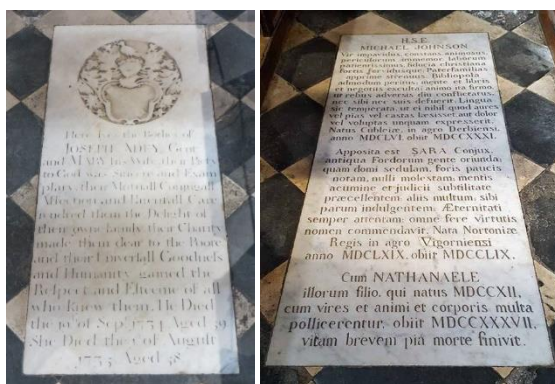 Here Lie the Bodies of
JOSEPH ADEY, Gent
and MARY his Wife, their Piety
to God was Sincere and Exem
plary, their Mutuall Conjugall
Affection and Parentall Care
rendred them the Delight of
their own family, their Charity
made them dear to the Poore
and their Univerſall Goodneſs
and Humanity gained the
Reſpect and Eſteeme of all
who knew them. He Died
the 10th of Sepr 1734 Aged 59
She Died the 1 of Auguſt
1735 Aged 58
H.S.E.
MICHAEL JOHNSON.
Vir impavidus, constans, animosus,
periculorum immemor, laborum
patientissimus; fiducia christiana
fortis, fervidusque, Paterfamilias
apprime strenuus, Bibliopola
admodum peritus; mente et libris
et negotiis exculta; animo ita firmo,
ut rebus adversis diu conflictatus,
nec sibi nec suis defuerit. Lingua
sic temperata, ut ei nihil quod aures
vel pias vel castas læsisset, aut dolor
vel voluptas unquam expresserit.
Natus Cubleiæ, in agro Derbiensi,
anno MDCLVI, obiit MDCCXXXI.
Apposita est SARA Conjux,
antiqua Fordorum gente oriunda;
quam domi sedulam, foris paucis
notam, nulli molestam, mentis
acumine et judicii subtilitate
præcellentem; aliis multum, sibi
parum indulgentem; Æternitati
semper attentam, omne fere virtutis
nomen commendavit. Nata Nortoniæ
Regis in agro Vigorniensi
anno MDCLXIX, obiit MDCCLIX.
Cum NATHANAELE
illorum filio, qui natus MDCCXII,
cum vires et animi et corporis multa
pollicerentur, obiit MDCCXXXVII,
vitam brevem pia morte finivit.